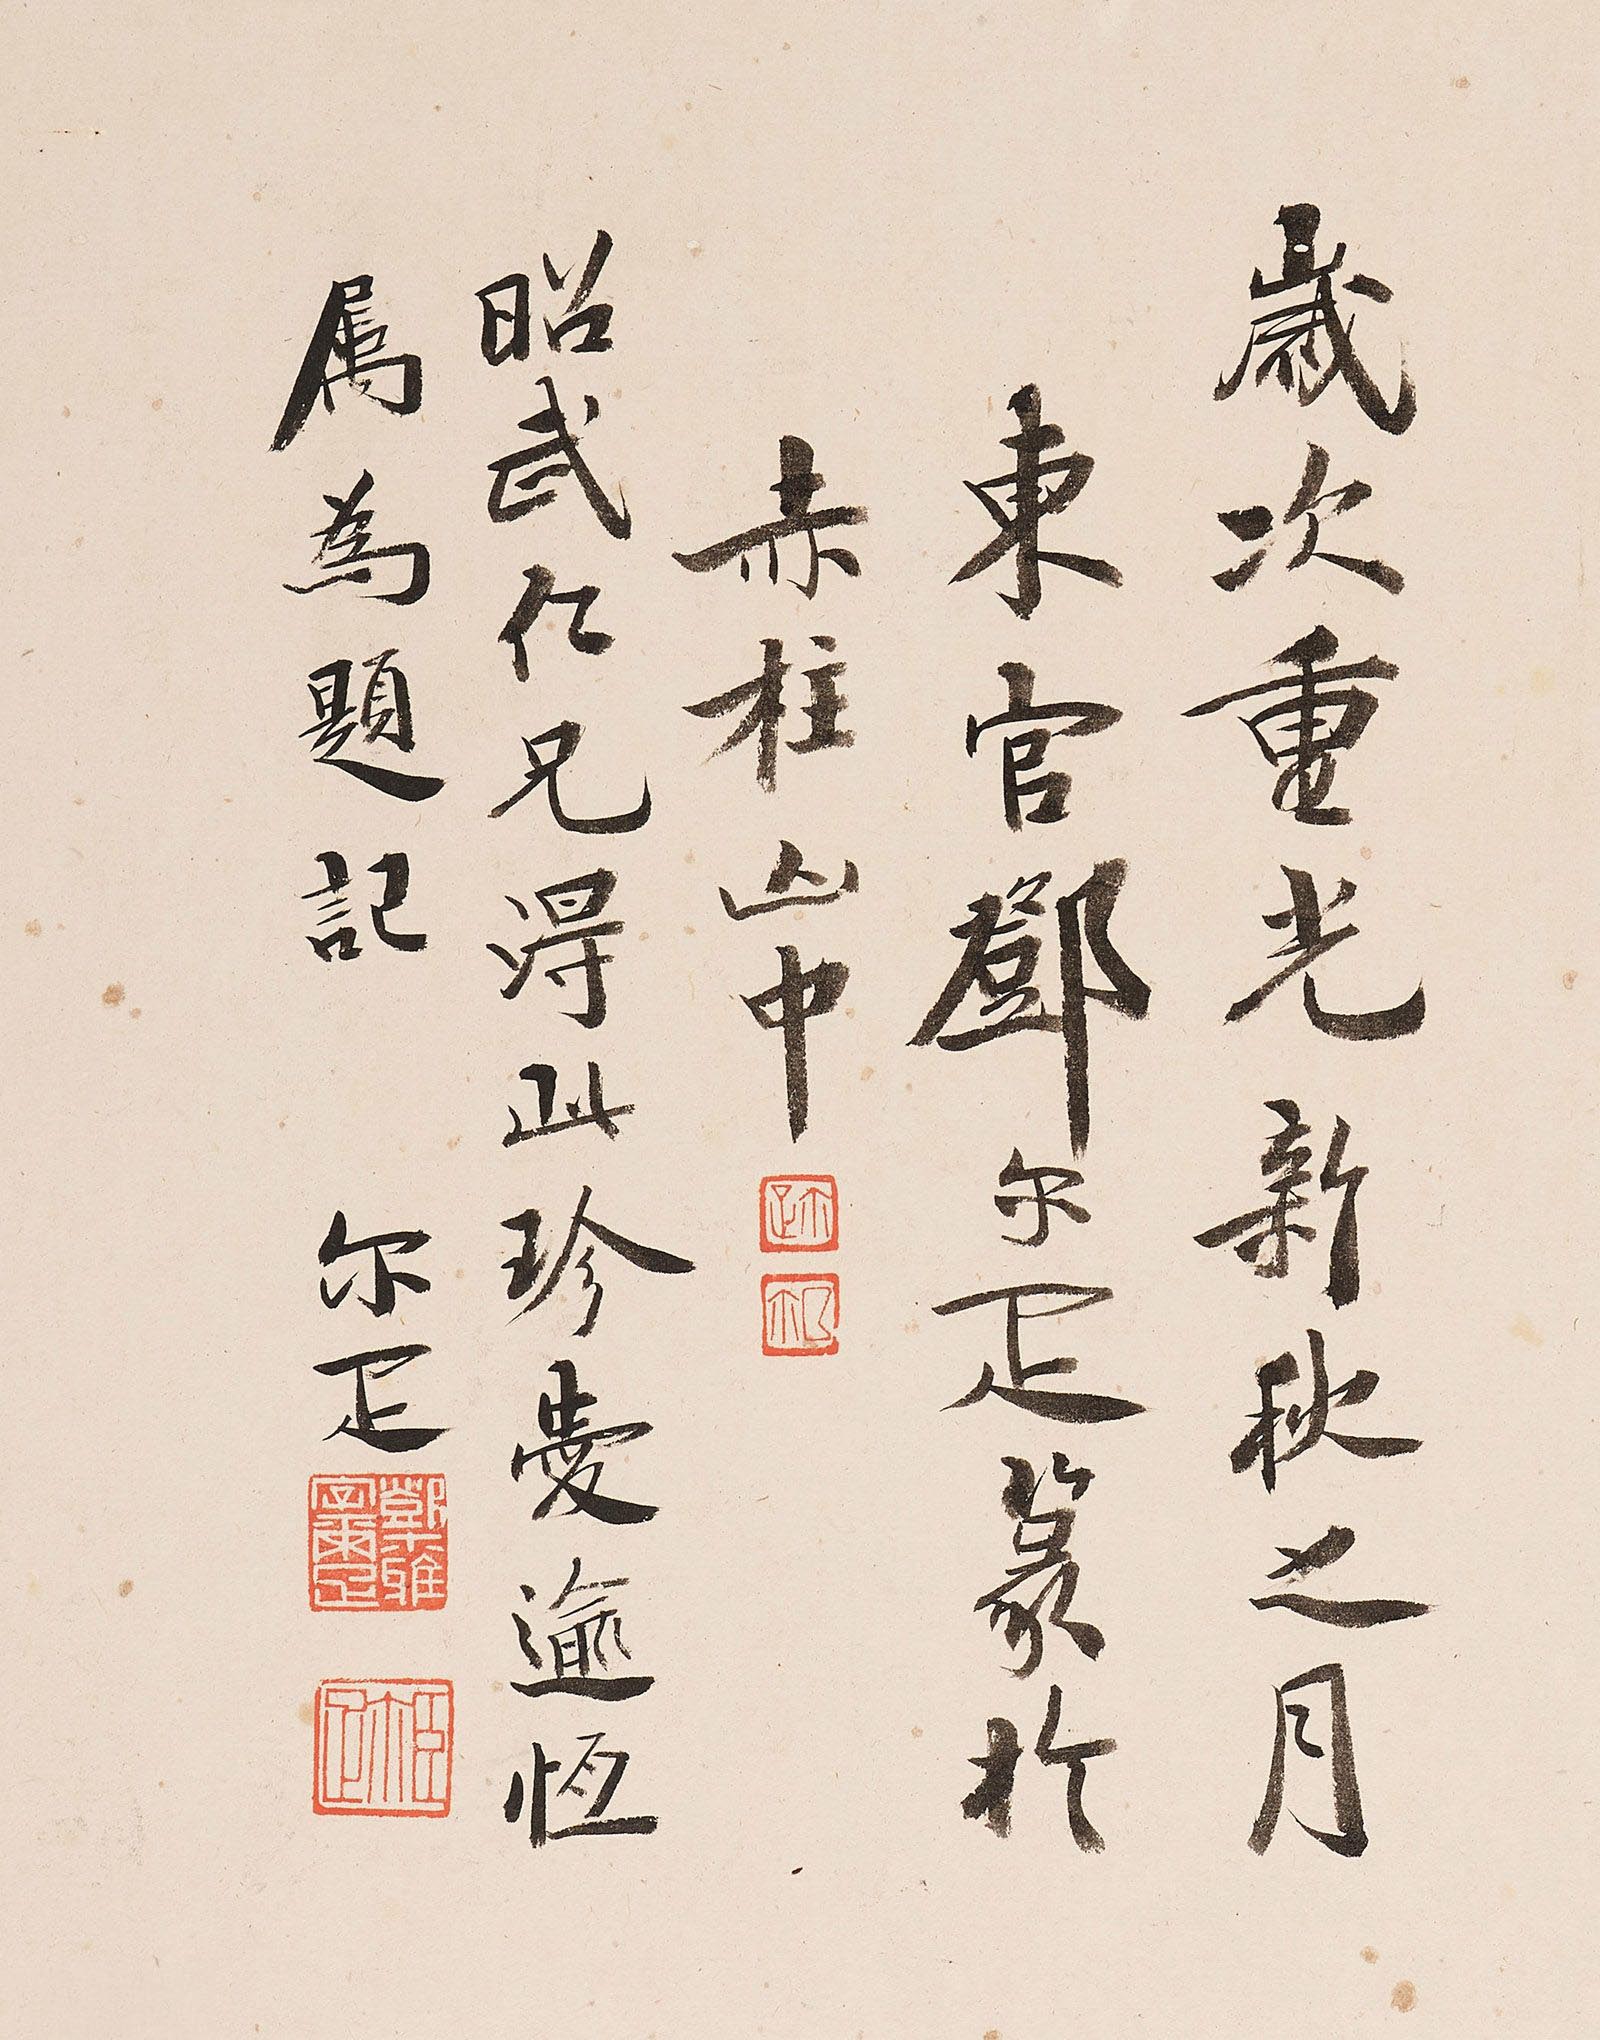 歲次重光新秋之月
東官鄧尔疋篆於
赤柱山中
昭武仁兄得此珍愛逾恆
属為題記 尔疋